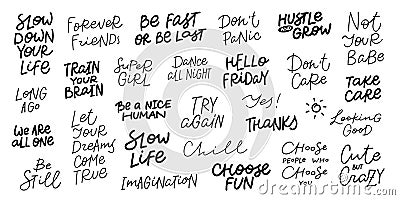 SLOW
DOWN
YOUR
LIFE
FOREVER
FRIENDS
BE FAST
OR BE LOST
DON'T
PANIC
HUSTLE
AND
GROW
NOT
YOUR
BABE
TRAIN
YOUR
BRAIN
SUPER
GIRL
DANCE
ALL NIGHT
HELLO
FRIDAY
DON'T
CARE
TAKE
CARE
LONG
AGO
BE A NICE
HUMAN
TRY
AGAIN
Yes!
THANKS
Looking
GOOD
WE ARE
ALL ONE
LET
YOUR
DREAMS
COME
TRUE
SLOW
LIFE
Chill
CHOOSE
PEOPLE WHO
CHOOSE
YOU
CUTE
BUT
CRAZY
Be
Still
IMAGINATION
CHOOSE
FUN